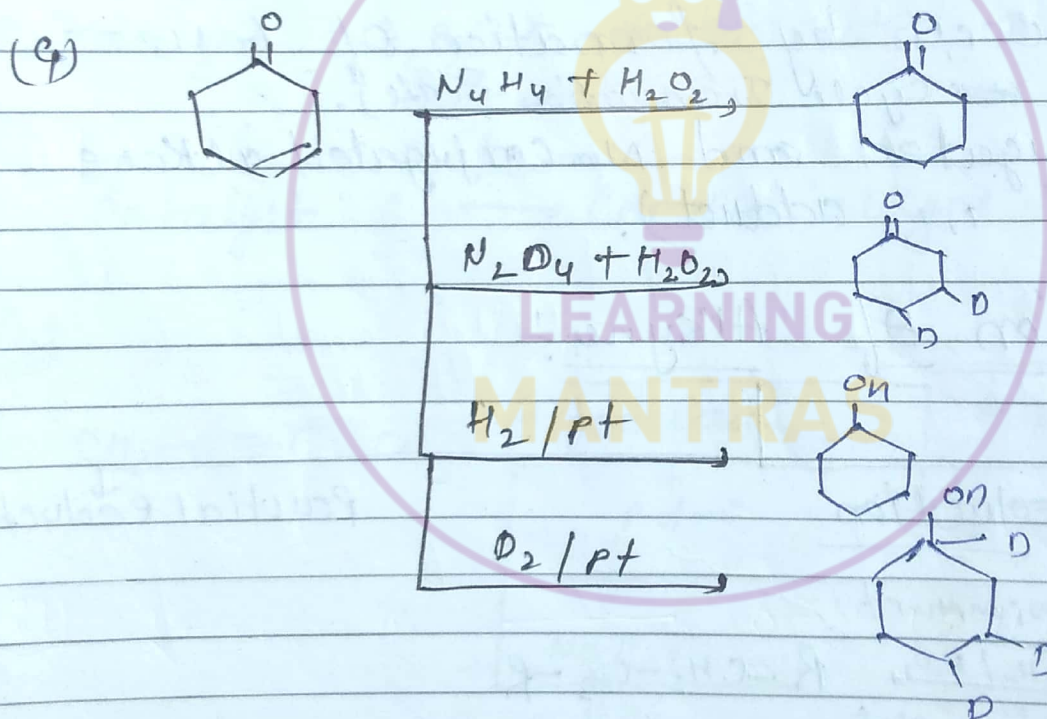 O
O
(9)
N4 H4 + H2O2
O
N2 D4 + H2O2
D
D
LEARNING
MANTRAS
OH
H2 / pt
OH
D
D2 / pt
D
D